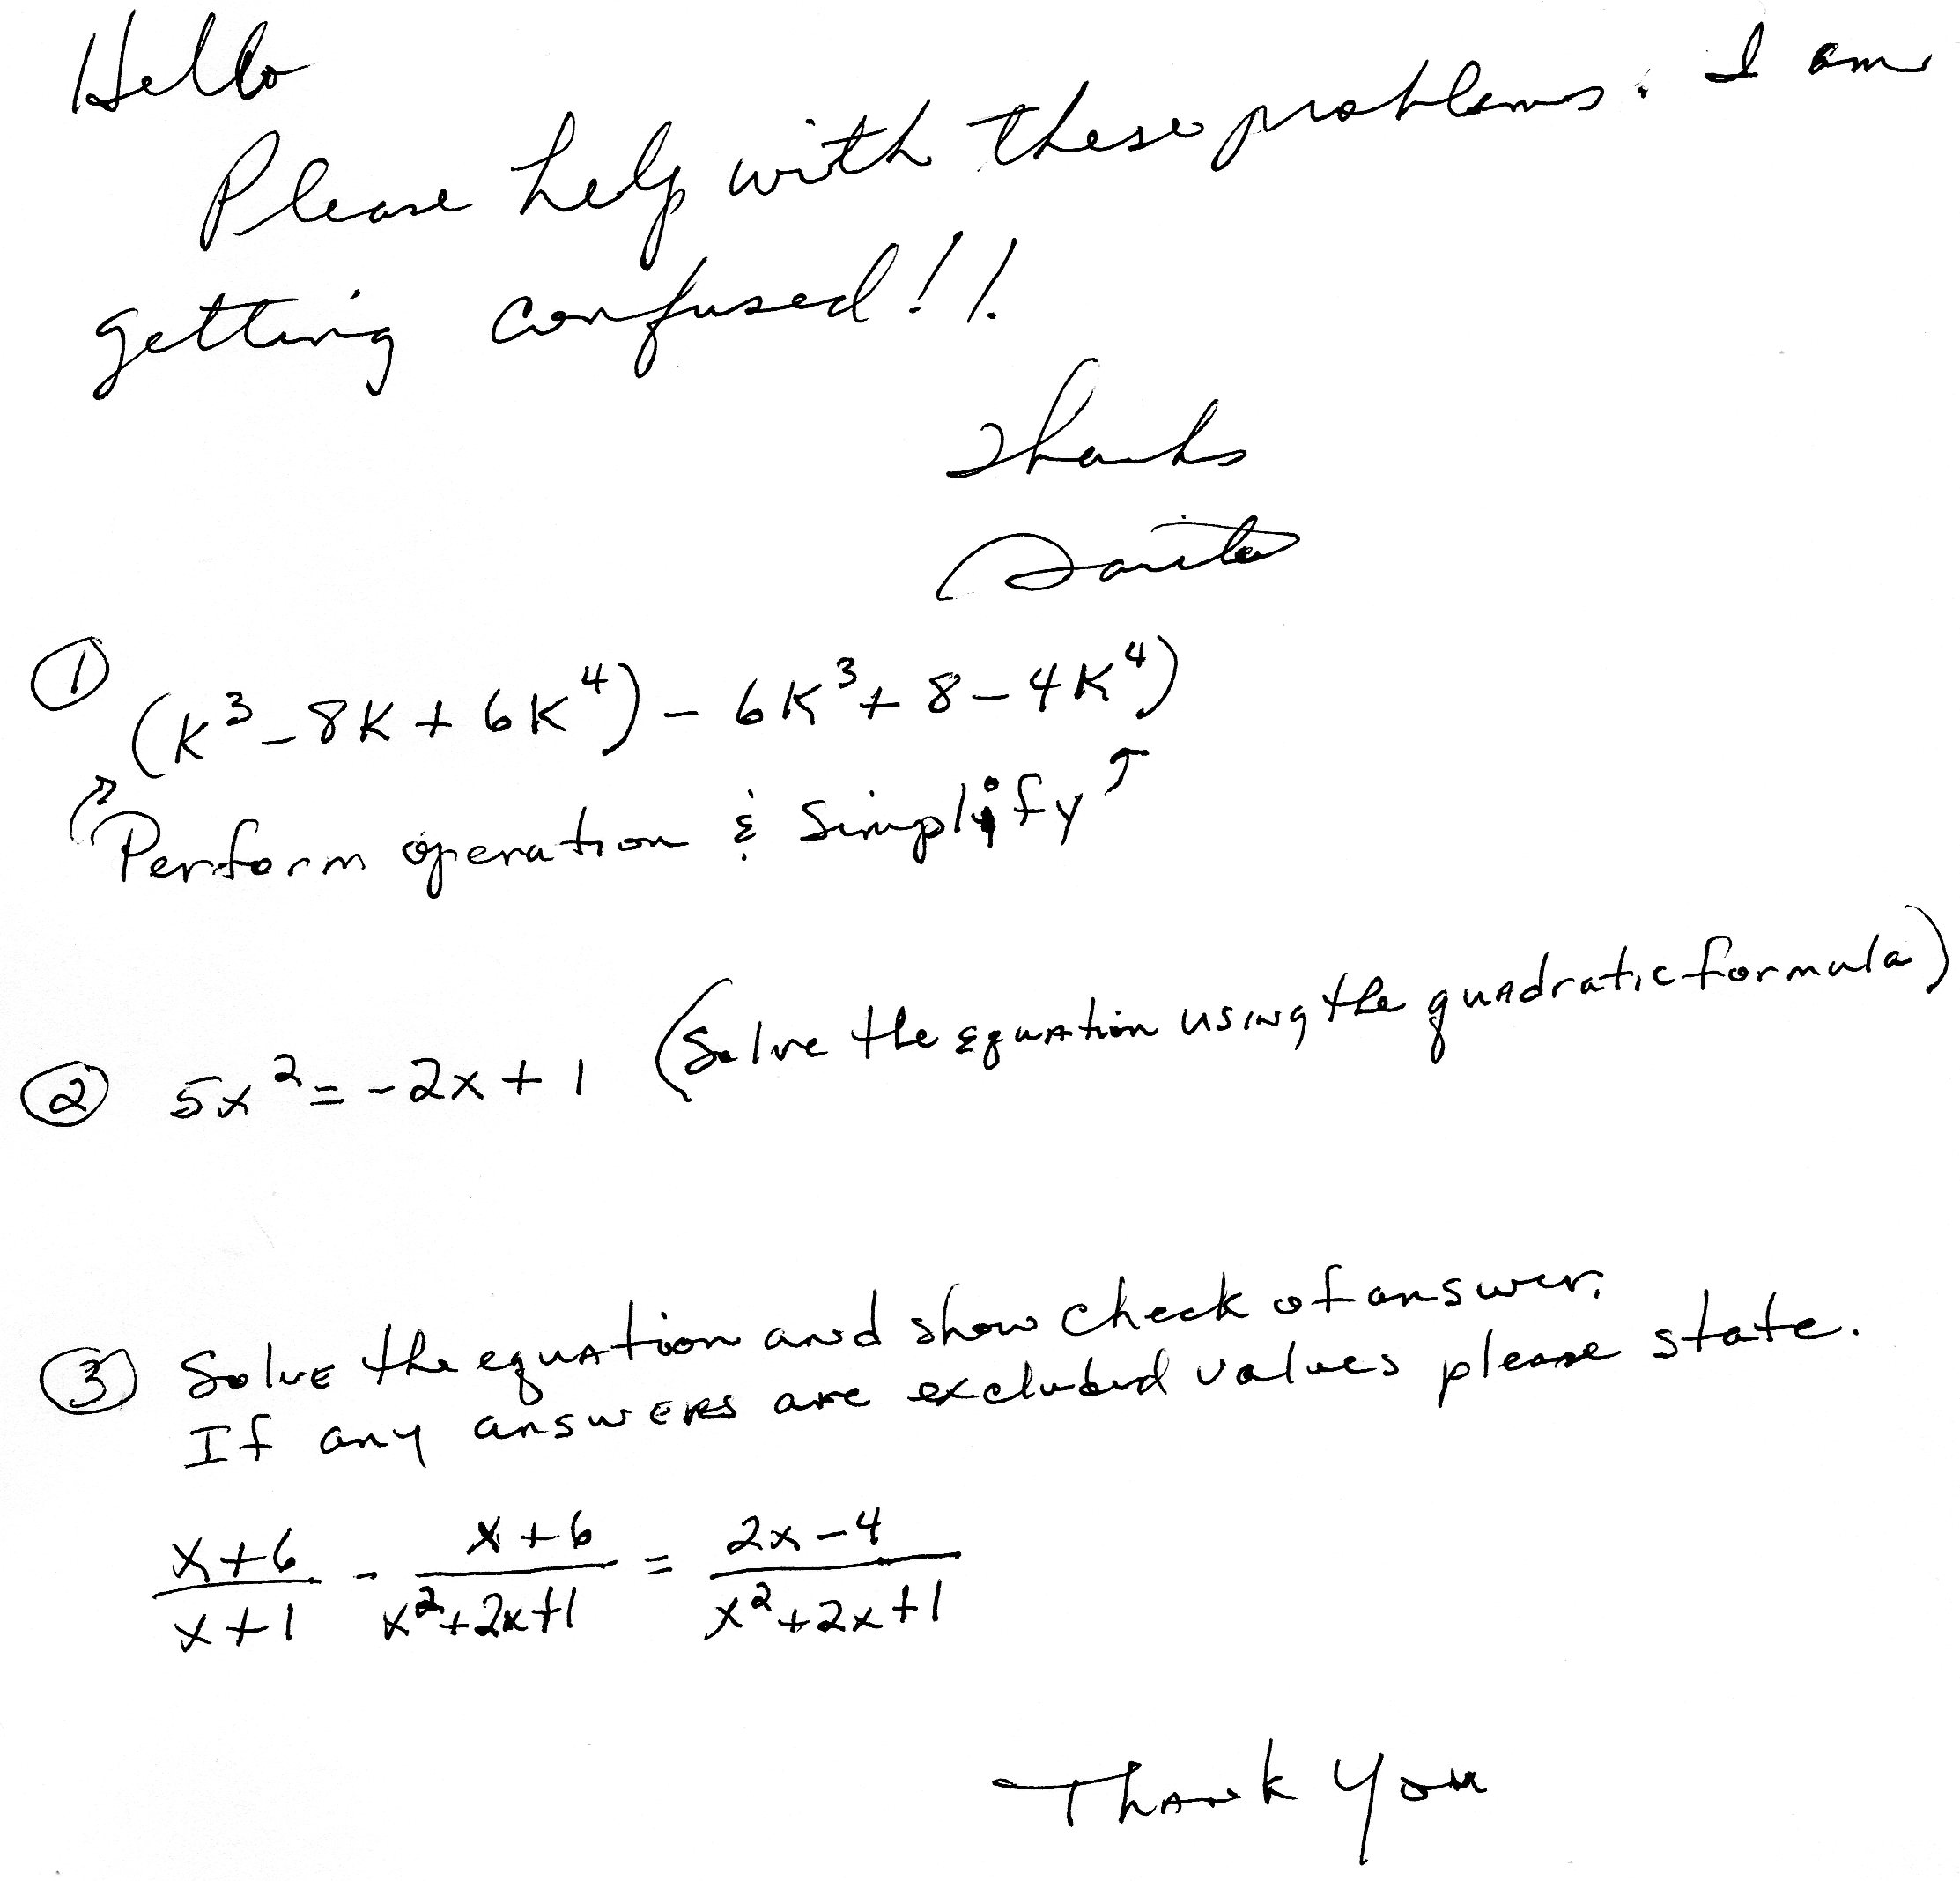 Hello
Please help with these problems. I am
getting confused!!
Thanks
① (k³-8k+6k⁴) - 6k³+8-4k⁴)
Perform operation & Simplify
② 5x² = -2x+1 (Solve the equation using the quadratic formula)
③ Solve the equation and show check of answer.
If any answers are excluded values please state.
x+6/x+1 - x+6/x²+2x+1 = 2x-4/x²+2x+1
Thank you